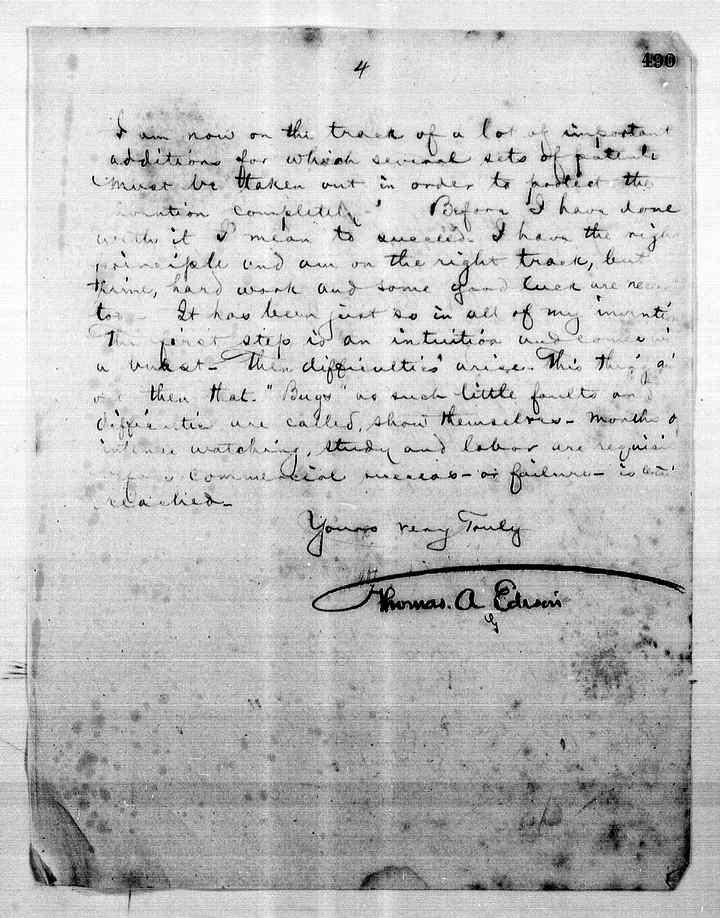 4
490
I am now on the track of a lot of important
additions for which several sets of patents
must be taken out in order to protect the
invention completely. Before I have done
with it I mean to succeed. I have the right
principle and am on the right track, but
time, hard work and some good luck are
too - It has been just so in all of my
The first step is an intuition and comes
a burst - Then difficulties arise. This thing
out then that. "Bugs" as such little faults and
difficulties are called, show themselves - months
intense watching, study and labor are
commercial success - or failure - is
reached -
Yours very Truly
Thomas. A Edison